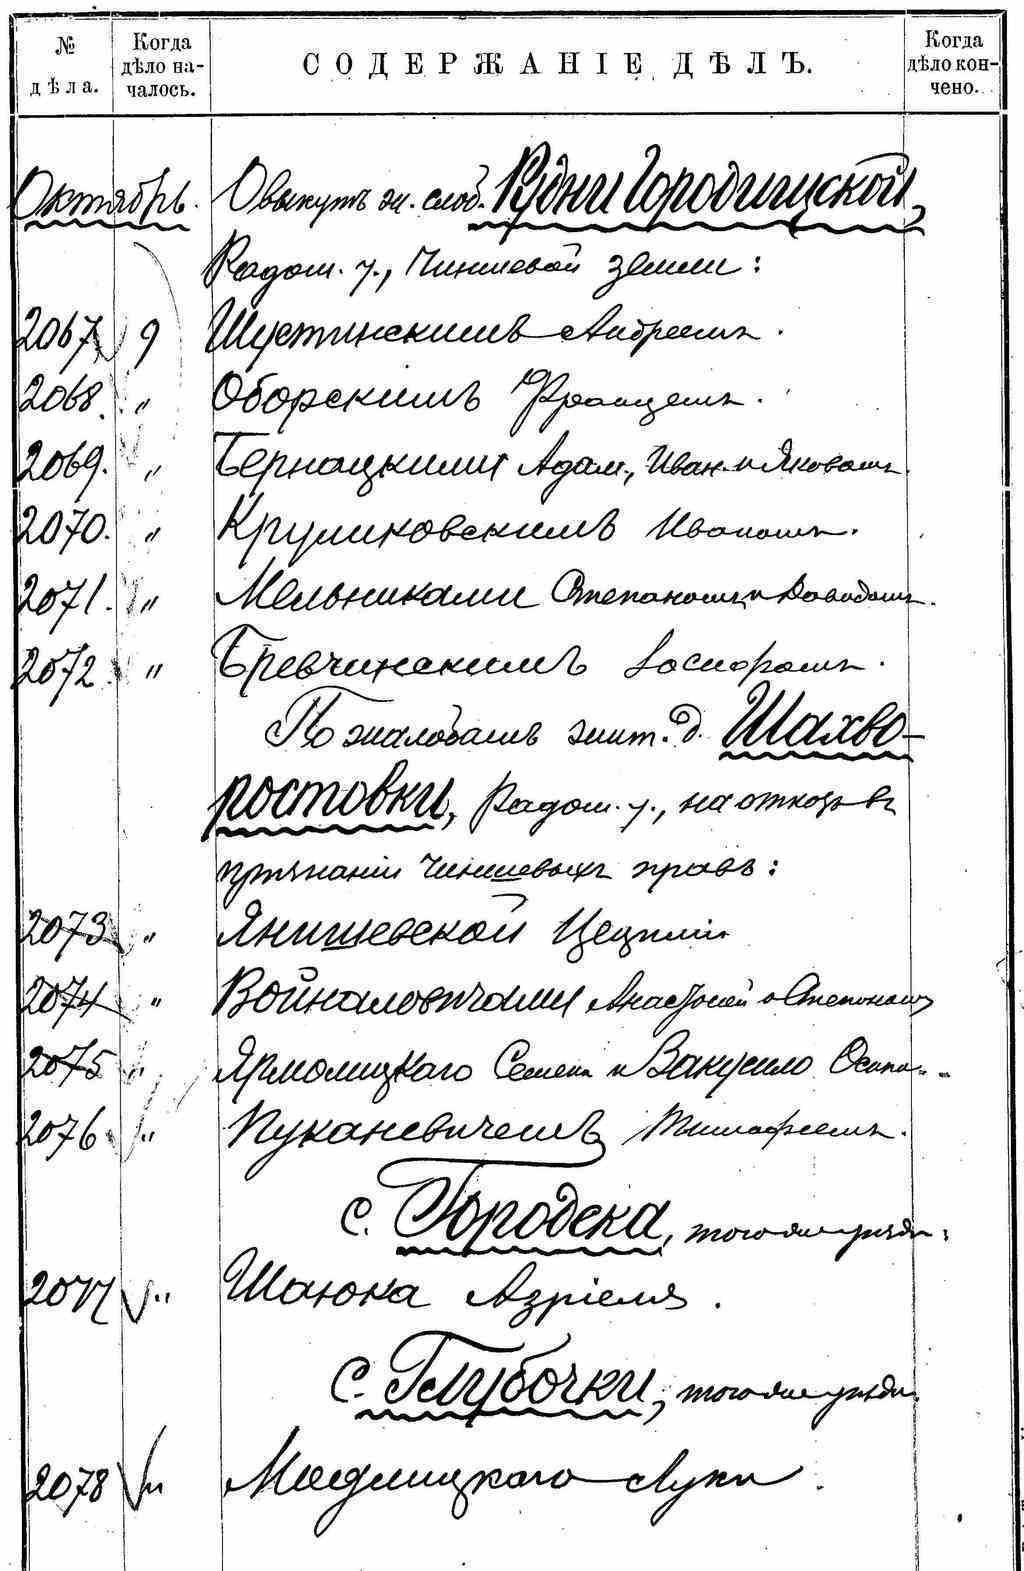 № дѣла.
Когда дѣло на-чалось.
СОДЕРЖАНІЕ ДѢЛЪ.
Когда дѣло кон-чено.
Октябрь. О выкупѣ жит. слоб. Рудни Городищской,
Радом. у., Чиншевой земли:
2067 9 Шустинскимъ Андреемъ.
2068. " Оборскимъ Францемъ.
2069. " Бернацкими Адам., Иван. и Яковомъ.
2070. " Крумковскимъ Иваномъ.
2071. " Мельниками Степаномъ и Давидомъ.
2072 " Бревчинскимъ Іосифомъ.
По жалобамъ жит. д. Шахво-
ростовки, Радом. у., на отказъ въ
признаніи Чиншевыхъ правъ:
2073 " Янишевской Цециліи
2074 " Войналовичами Анастасіей и Степаномъ
2075 " Ярмолицкаго Семена и Вакусило Осипа
2076 " Пукановичемъ Тимофеемъ.
с. Городска, того же уѣзда:
2077 " Шаюка Азріеля.
с. Глубочки, того же уѣзда.
2078 " Модлицкаго Луки.